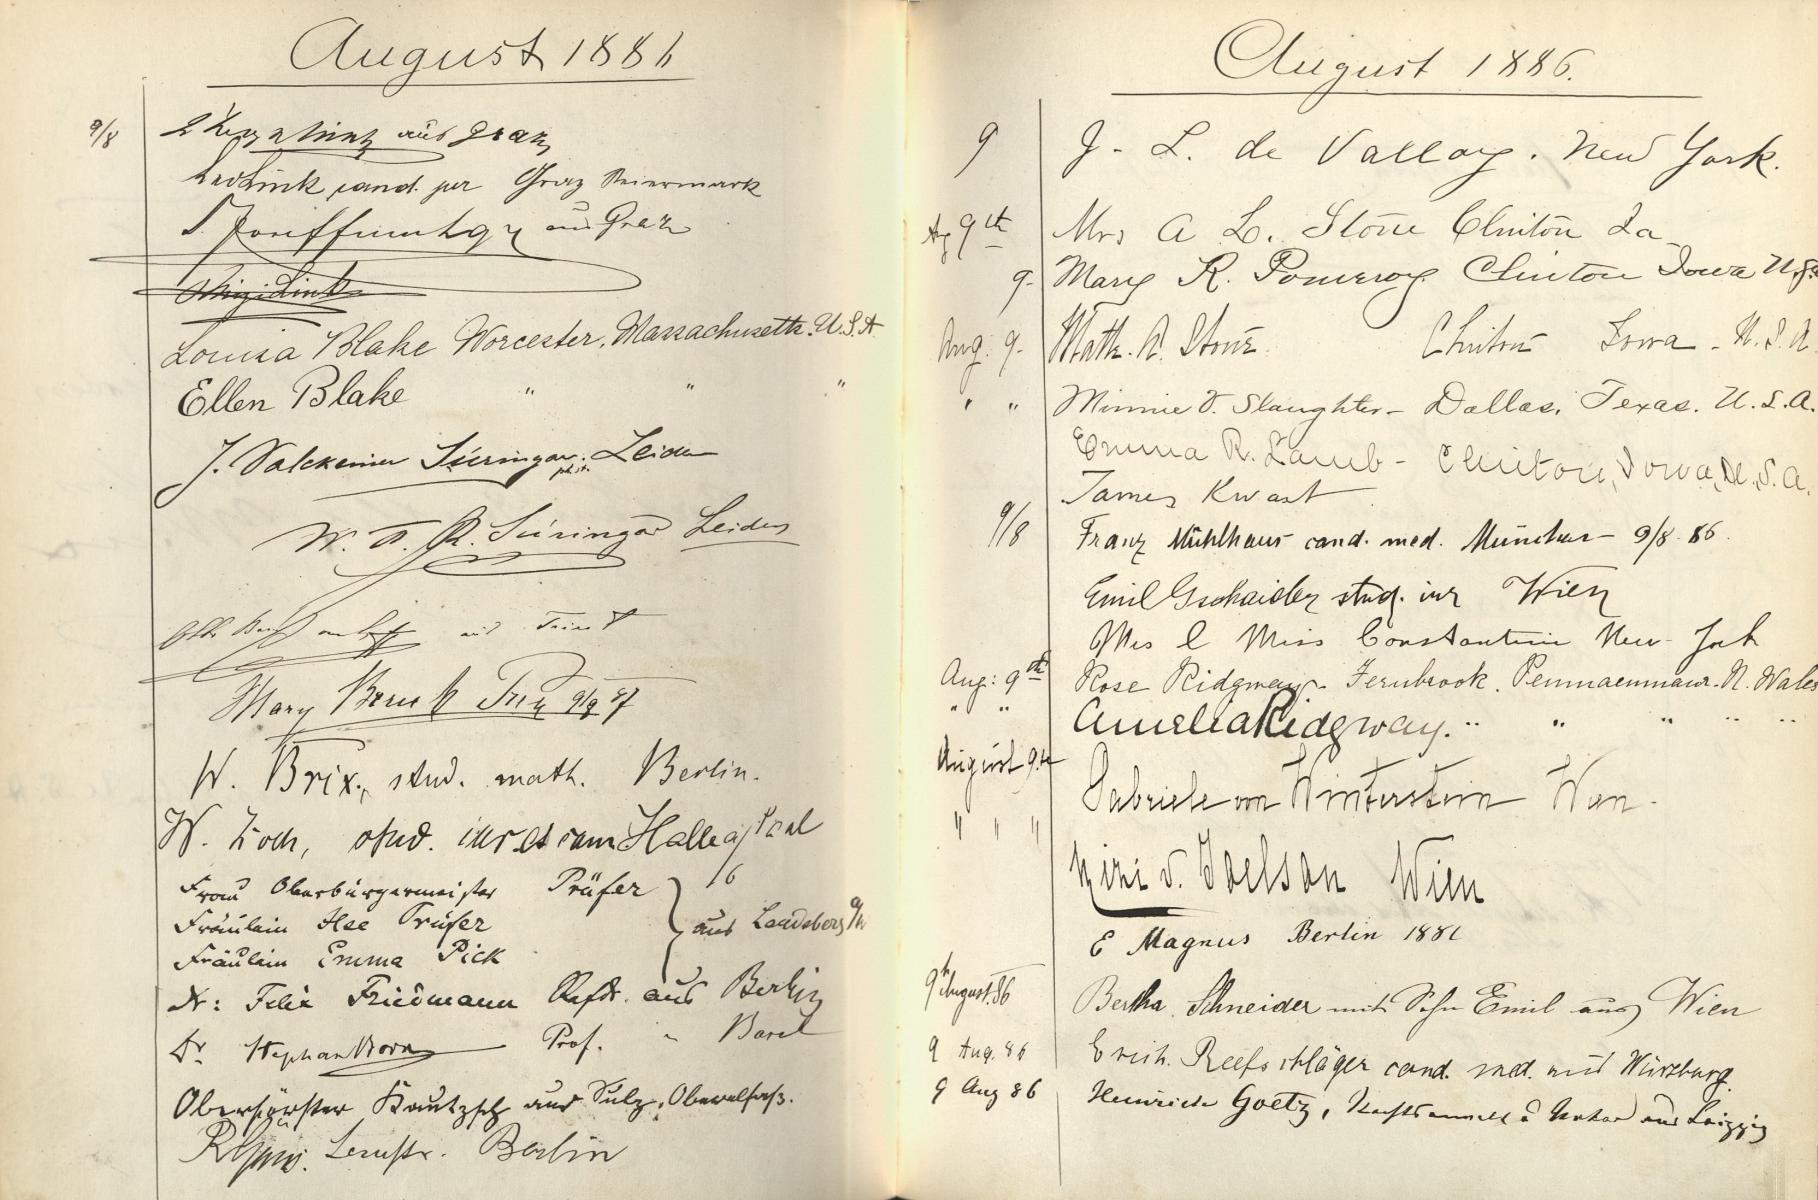 August 1886
9/8
aus Graz
Link cand. jur Graz Steiermark
aus Graz
Mizi Link
Louisa Blake Worcester, Massachusetts. U.S.A
Ellen Blake " " "
J. Valckenier Suringar. Leiden
W. F. R. Suringar Leiden
aus Triest
Mary 9/8 87
W. Brix, stud. math. Berlin.
W. Koch, stud. iur et cam Halle a/Saal
Frau Oberbürgermeister Prüfer
Fräulein Ilse Prüfer
aus Landsberg a/W
Fräulein Emma Pick
Dr: Felix Friedmann Refdr. aus Berlin
Dr Stephan Born Prof. " Basel
Oberförster Kautzsch aus Sulz, Oberelsass.
Berlin
August 1886.
9 J. L. de Valloy. New York.
Aug 9th Mrs A L. Stone Clinton Ia
9. Mary R. Pomeroy Clinton Iowa U.S.A
Aug. 9. Math. A. Stone. Clinton Iowa. U.S.A
" " Minnie V. Slaughter - Dallas, Texas. U.S.A.
Emma R. Lamb - Clinton, Iowa, U.S.A.
James Kwast
9/8 Franz Mühlhaus cand. med. München - 9/8 86.
Emil Gschaider stud. iur Wien
Mrs & Miss Constantine New York
Aug: 9th Rose Ridgway. Fernbrook. Penmaenmawr. N. Wales
" " Amelia Ridgway. " " " " "
August 9th Gabriele von Winterstein Wien.
" " " Mizi v. Joelson Wien
E Magnus Berlin 1886
9t August. 86 Bertha Schneider mit Sohn Emil aus Wien
9 Aug. 86 Erich. Reefschläger cand. med. aus Würzburg.
9 Aug 86 Heinrich Goetz, Rechtsanwalt & Notar aus Leipzig